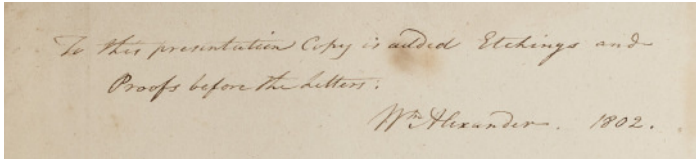 To this presentation Copy is added Etchings and
Proofs before the Letters:
Wm Alexander. 1802.